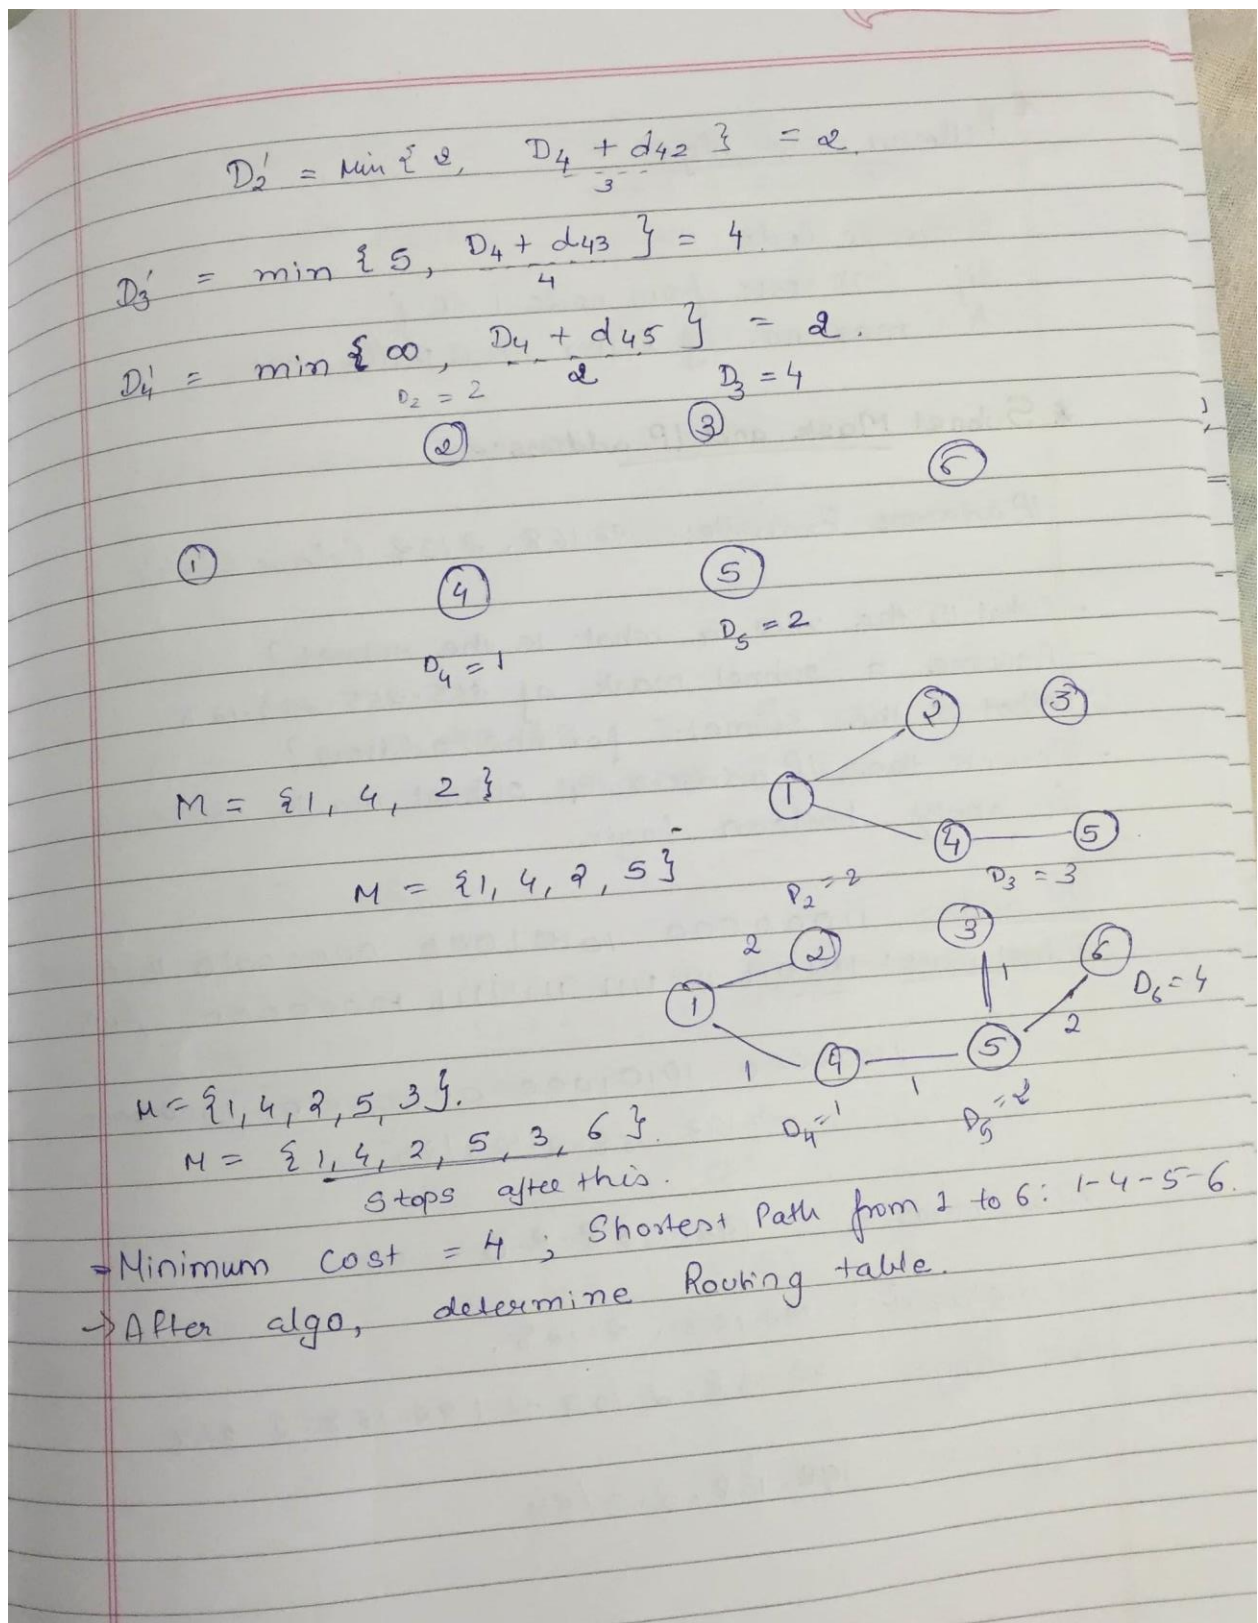 D2' = Min { 2, D4 + d42 } = 2.
3
D3' = min { 5, D4 + d43 } = 4.
4
D4' = min { ∞, D4 + d45 } = 2.
2
D2 = 2
D3 = 4
2
3
6
1
4
5
D4 = 1
D5 = 2
2
3
1
4
5
M = {1, 4, 2}
M = {1, 4, 2, 5}
D2 = 2
D3 = 3
2
2
3
6
1
1
D6 = 4
1
4
1
5
2
D4 = 1
D5 = 2
M = {1, 4, 2, 5, 3}.
M = {1, 4, 2, 5, 3, 6}.
Stops after this.
→ Minimum Cost = 4 ; Shortest Path from 1 to 6 : 1-4-5-6.
→ After algo, determine Routing table.